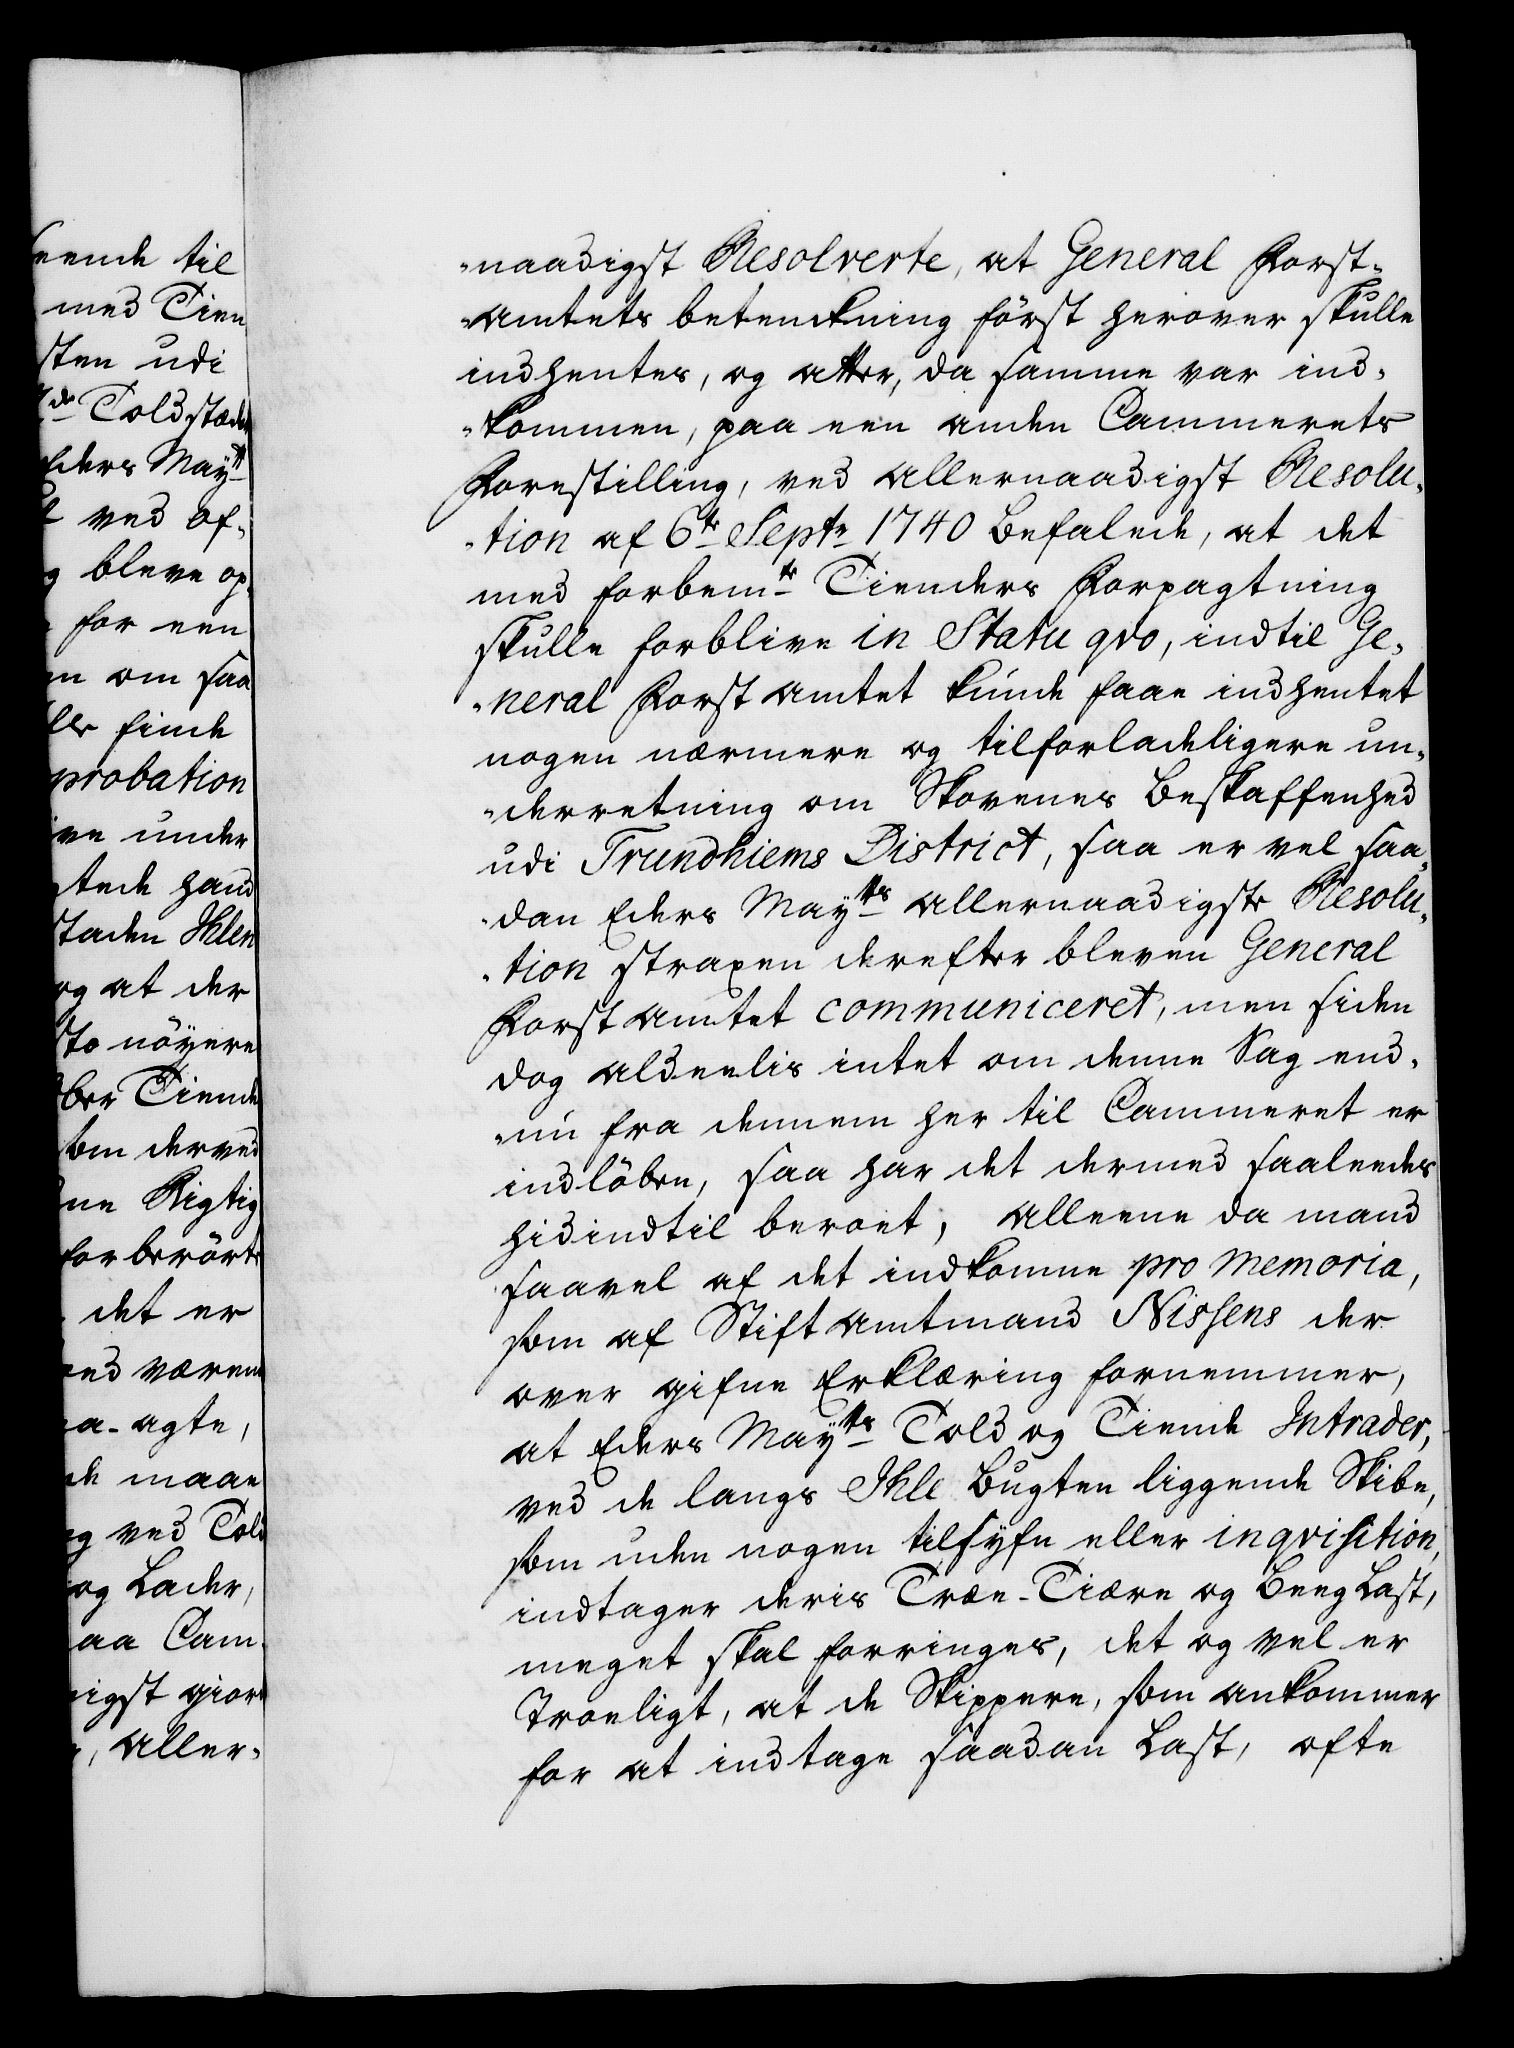 eende til
med Tien
sten udi
de Toldstæde
Eders Maytt
ved of-
bleve op-
for een
om saa
finde
probation
under
hand
staden Ihlen
og at der
nöyere
Tiende
som derved
Rigtig
forberört
det er
være
a-agte,
maae
ved Told
og Lader,
Cam-
giort
, Aller-
-naadigst Resolverte, at General Forst-
-Amtets betenckning först herover skulle
indhentes, og atter, da samme var ind-
-kommen, paa een anden Cammerets
Forestilling, ved Allernaadigst Resolu-
-tion af 6te Septr 1740 befalede, at det
med forbemte Tienders Forpagtning
skulle forblive in Statu qvo, indtil Ge-
-neral Forst Amtet kunde faae indhentet
nogen nærmere og tilforladeligere un-
-derretning om Skovenes Beskaffenhed
udi Trundhiems District, saa er vel saa-
-dan Eders Maytts Allernaadigste Resolu-
-tion straxen derefter bleven General
Forst Amtet communiceret, men siden
dog aldeelis intet om denne Sag end-
-nu fra dennem her til Cammeret er
indlöben, saa har det dermed saaleedes
hidindtil beroet; Alleene da mand
saavel af det indkomne pro memoria,
som af Stift Amtmand Nissens der
over gifne Erklæring fornemmer,
at Eders Maytts Told og Tiende Intrader,
ved de langs Ihle Bugten liggende Skibe,
som uden nogen tilsyfn eller inqvisition,
indtager deris Træe-Tiære og Beeg Last,
meget skal forringes, det og vel er
Troeligt, at de Skippere, som ankommer
for at indtage saadan Last, ofte